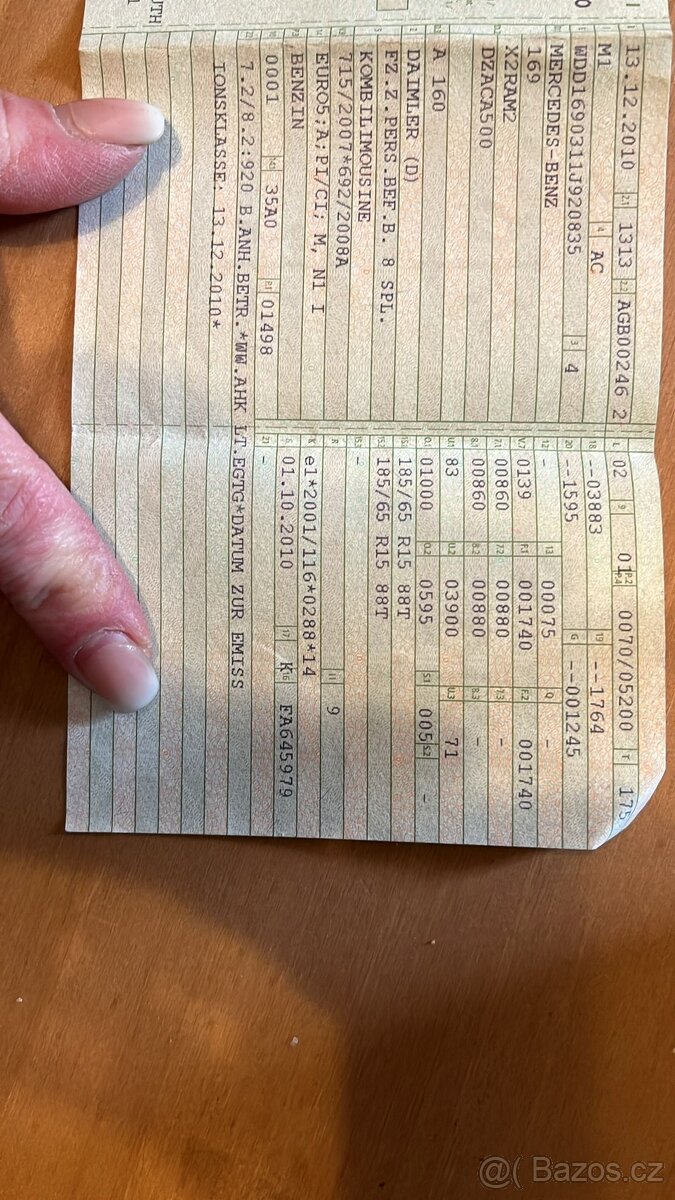 13.12.2010 2.1 1313 2.2 AGB00246 2
M1 4 AC
WDD1690311J920835 3 4
MERCEDES-BENZ
169
X2RAM2
DZACA500
A 160
DAIMLER (D)
FZ.Z.PERS.BEF.B. 8 SPL.
KOMBILIMOUSINE
715/2007*692/2008A
EURO5;A;PI/CI; M, N1 I
BENZIN
0001 35A0 P.1 01498
7.2/8.2:920 B.ANH.BETR.*WW.AHK LT.EGTG*DATUM ZUR EMISS
IONSKLASSE: 13.12.2010*
L 02 9 01 P.2 P.4 0070/05200 T 175
18 --03883 19 --1764
20 --1595 G --001245
12 - 13 00075 Q -
V.7 0139 F.1 001740 F.2 001740
7.1 00860 7.2 00880 7.3 -
8.1 00860 8.2 00880 8.3 -
U.1 83 U.2 03900 U.3 71
O.1 01000 O.2 0595 S.1 005 S.2 -
15.1 185/65 R15 88T
15.2 185/65 R15 88T
15.3 -
R 11 9
K e1*2001/116*0288*14
6 01.10.2010 17 K 16 FA645979
21 -
UTH
@( Bazos.cz